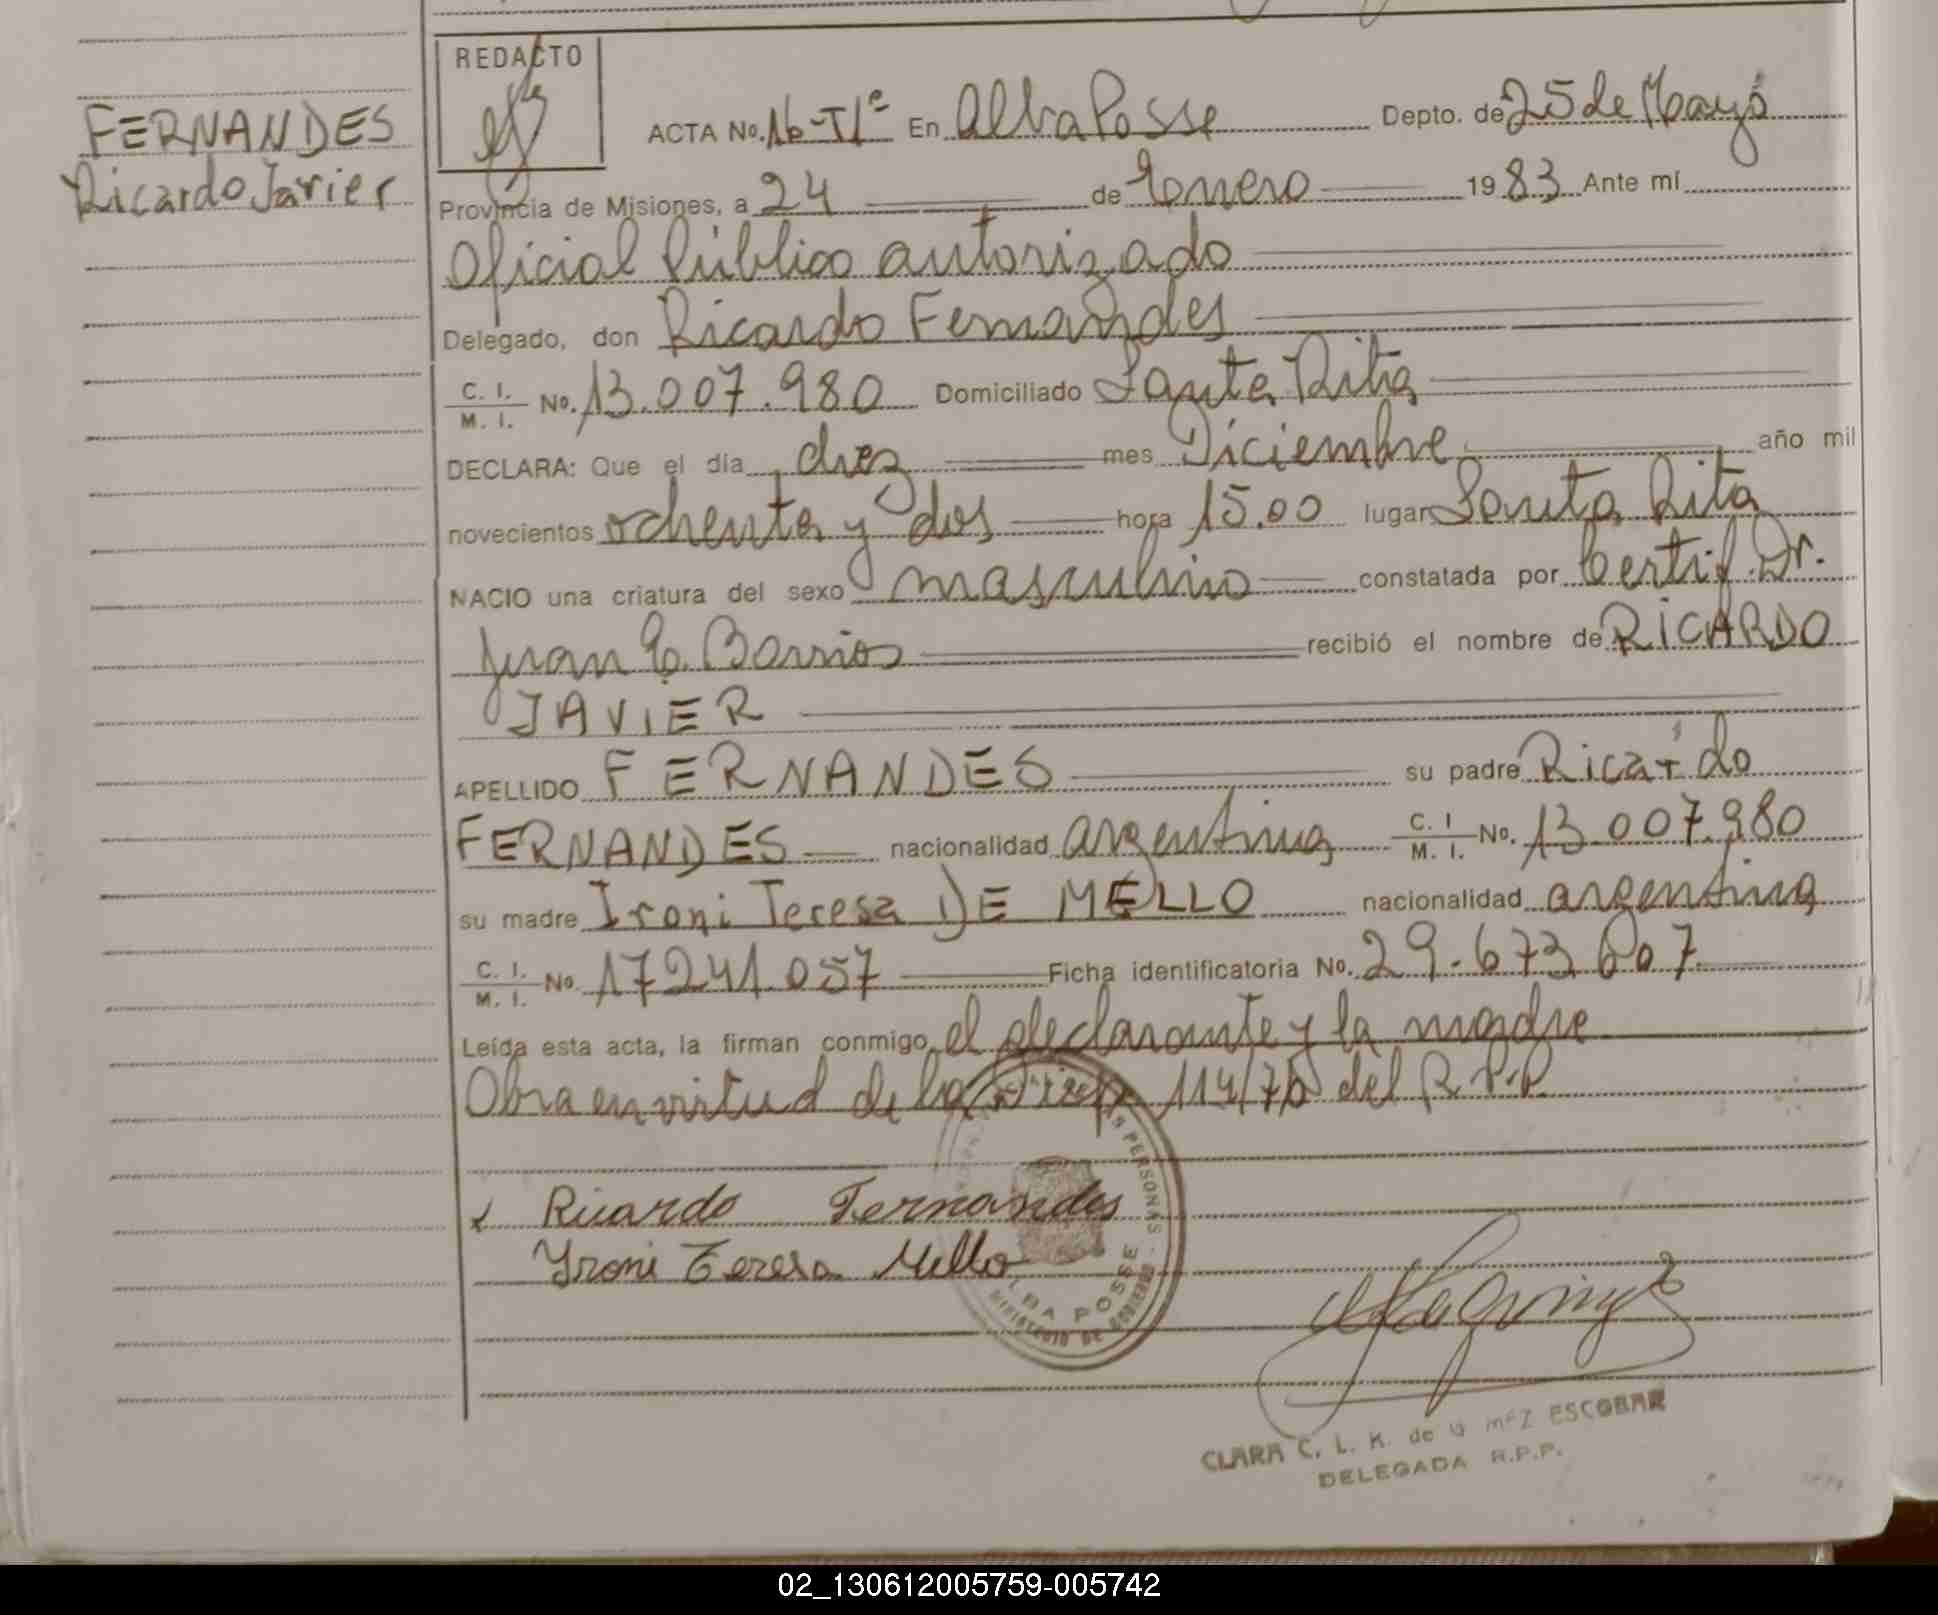 FERNANDES
Ricardo Javier
REDACTO
ACTA No. 16-T1º En Alba Posse Depto. de 25 de Mayo
Provincia de Misiones, a 24 de Enero 1983 Ante mí
Oficial Público autorizado
Delegado, don Ricardo Fernandes
C. I. / M. I. No. 13.007.980 Domiciliado Santa Rita
DECLARA: Que el día diez mes Diciembre año mil
novecientos ochenta y dos hora 15.00 lugar Santa Rita
NACIO una criatura del sexo masculino constatada por Certif. Dr.
Juan C. Barrios recibió el nombre de RICARDO
JAVIER
APELLIDO FERNANDES su padre Ricardo
FERNANDES nacionalidad argentina C. I / M. I. No. 13.007.980
su madre Ironi Teresa DE MELLO nacionalidad argentina
C. I. / M. I. No. 17241.057 Ficha identificatoria No. 29.673.607
Leída esta acta, la firman conmigo, el declarante y la madre
Obra en virtud de la 114/76 del R.P.P.
x Ricardo Fernandes
Yroni Teresa Mello
PERSONAS
ALBA POSSE
MINISTERIO DE GOBIERNO
CLARA C. L. K. de ESCOBAR
DELEGADA R.P.P.
02_130612005759-005742